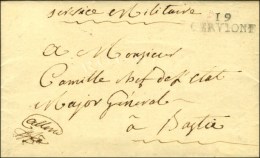 Service Militaire
19
CERVIONE
A Monsieur
Camille chef de
Major Général
à Bastia